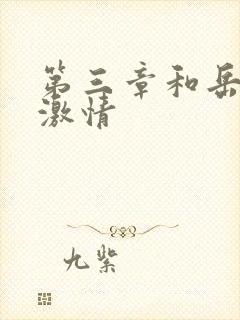 第三章和岳
激情
九紫